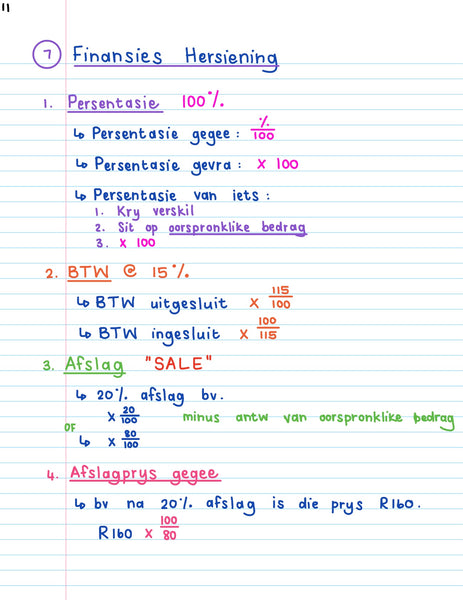 11
7 Finansies Hersiening
1. Persentasie 100%
↳ Persentasie gegee: %/100
↳ Persentasie gevra: x 100
↳ Persentasie van iets:
1. Kry verskil
2. Sit op oorspronklike bedrag
3. x 100
2. BTW @ 15%
↳ BTW uitgesluit x 115/100
↳ BTW ingesluit x 100/115
3. Afslag "SALE"
↳ 20% afslag bv.
x 20/100 minus antw van oorspronklike bedrag
OF
↳ x 80/100
4. Afslagprys gegee
↳ bv na 20% afslag is die prys R160.
R160 x 100/80